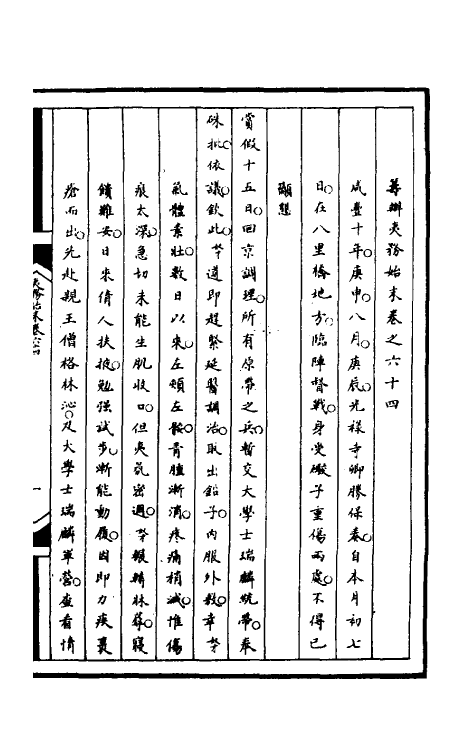 籌辦夷務始末卷之六十四
咸豐十年。庚申。八月。庚辰。光祿寺卿勝保奏。自本月初七
日。在八里橋地方。臨陣督戰。身受礮子重傷兩處。不得已
顯懇
賞假十五日。回京調理。所有原帶之兵。暫交大學士瑞麟統帶。奉
硃批。依議。欽此。等遵即趕緊延醫調治。取出鉛子。內服外敷。幸等
氣體素壯。數日以來。左頰左骽青腫漸消。疼痛稍減。惟傷
痕太深。急切未能生肌收口。但夷氛密邇。等輾轉牀蓐。寢
饋難安。日來倩人扶掖。勉強試步。漸能動履。因即力疾裹
瘡而出。先赴親王僧格林沁。及大學士瑞麟軍營。查看情
夷務始末卷六四
一